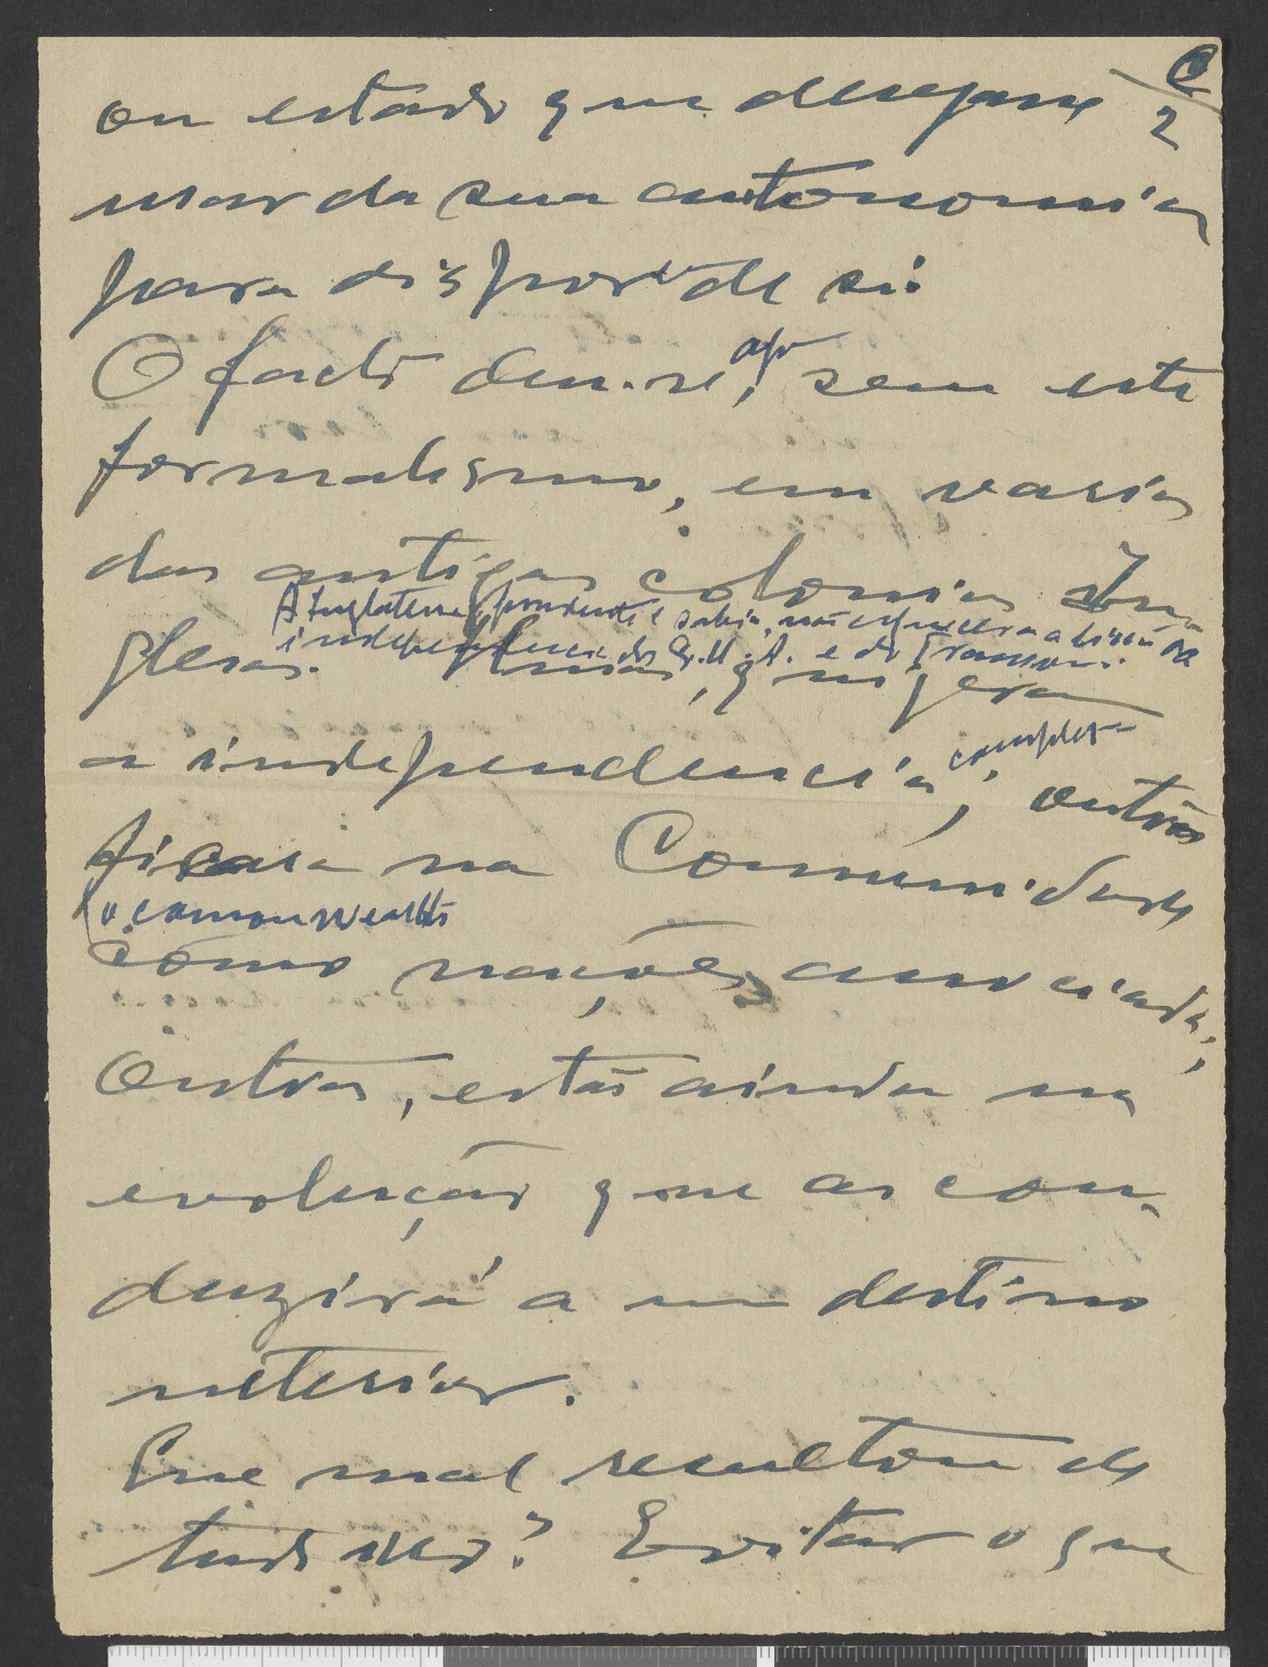 C
2
ou estado que desejasse
usar da sua autonomia
para dispor de si.
O facto deu-se, sem este
formalismo, em varias
das antigas colonias In
glesas.
A Inglaterra, prudente e sabia, não esquecera a lição da
independencia dos E.U.A. e do
a independencia completa; outras
ficara na Comunidade
(o commonwealth
como nações associadas;
Outras, estão ainda na
evolução que as con-
duzirá a um destino
ulterior.
Que mal resultou de
tudo isso? Evitar o que